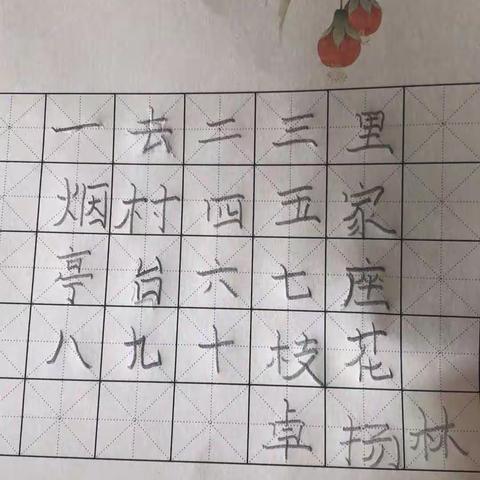 一去二三里
烟村四五家
亭台六七座
八九十枝花
卓扬林